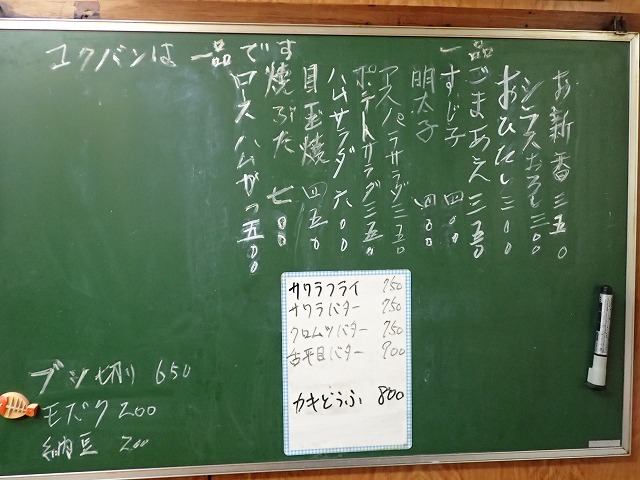 コクバンは一品です
一品
お新香 三五〇
シラスおろし 三〇〇
おひたし 三〇〇
ごまあえ 三五〇
すじ子 四〇〇
明太子 四〇〇
アスパラサラダ 三五〇
ポテトサラダ 三五〇
ハムサラダ 六〇〇
目玉焼 四五〇
焼ぶた 七〇〇
ロースハムがつ 五〇〇
サワラフライ 750
サワラバター 750
クロムツバター 750
舌平目バター 900
カキどうふ 800
ブツ切り 650
モズク 200
納豆 200